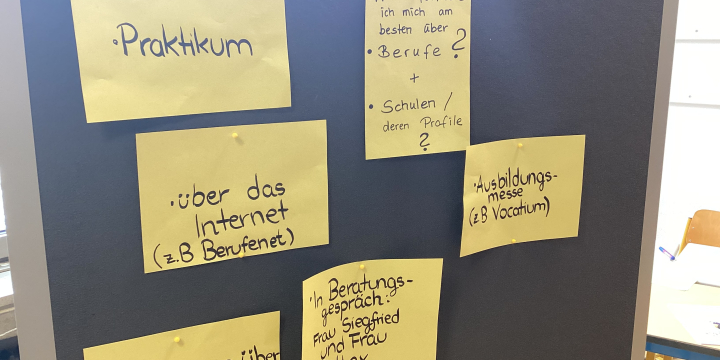 · Praktikum
ich mich am
besten über
• Berufe ?
+
• Schulen /
deren Profile
?
· über das
Internet
(z.B Berufenet)
· Ausbildungs-
messe
(z B Vocatium)
· In Beratungs-
gespräch:
Frau Siegfried
und Frau
über